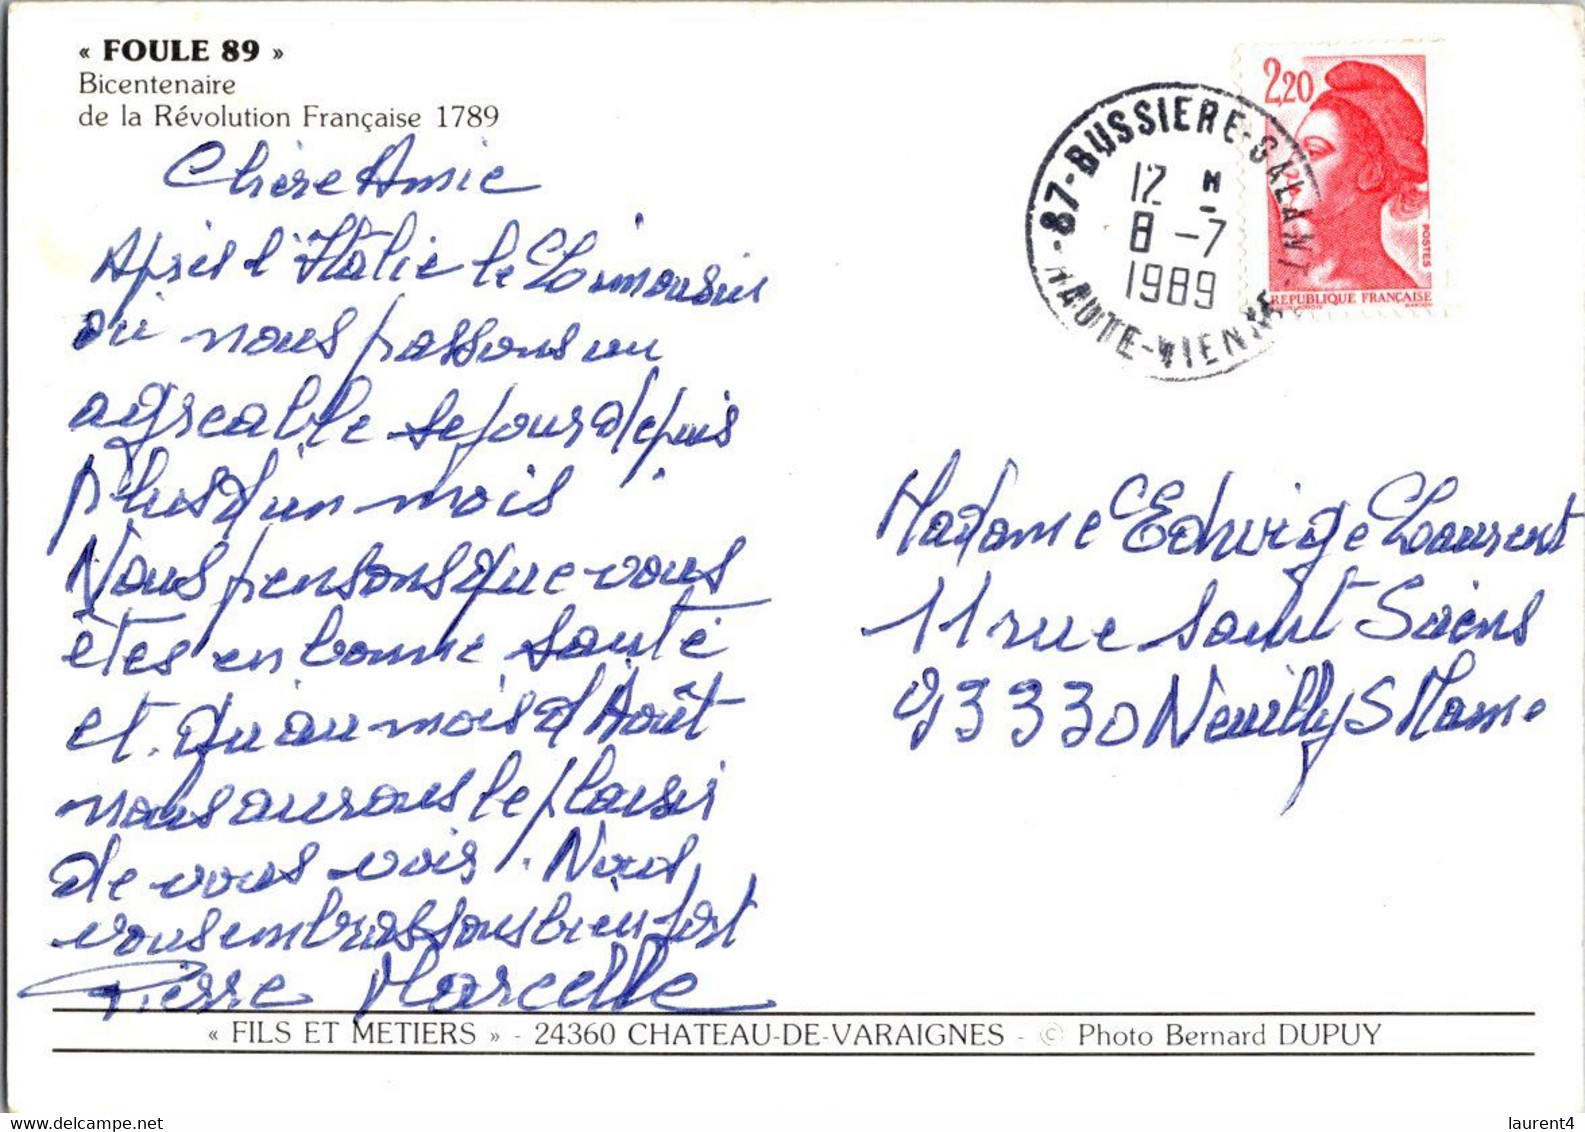 « FOULE 89 »
Bicentenaire
de la Révolution Française 1789
Chère Amie
Après l'Italie le Limousin
où nous passons un
agreable sejour depuis
plus d'un mois
Nous pensons que vous
êtes en bonne santé
et qu'au mois d'Août
nous aurons le plaisir
de vous voir. Nous
vous embrassons bien fort
Pierre Marcelle
87-BUSSIERE-GALANT
12 H
8 -7
1989
HAUTE-VIENNE
2,20
POSTES
REPUBLIQUE FRANÇAISE
Madame Edwige Laurent
11 rue Saint Saëns
93330 Neuilly S Marne
« FILS ET METIERS » - 24360 CHATEAU-DE-VARAIGNES - © Photo Bernard DUPUY
delcampe.net
laurent4